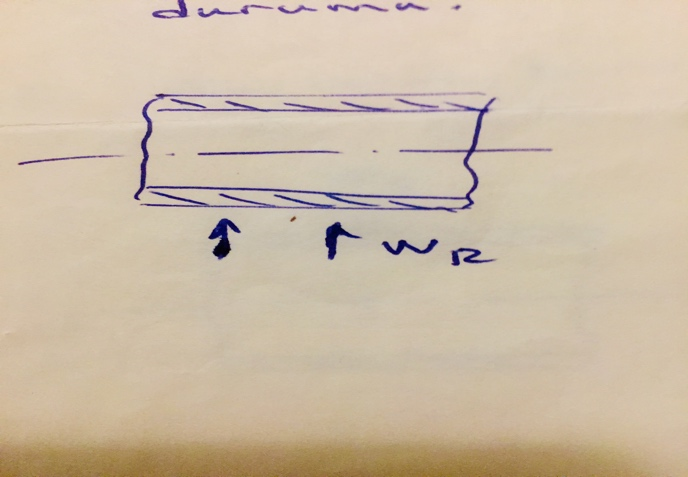 durumu.
W R